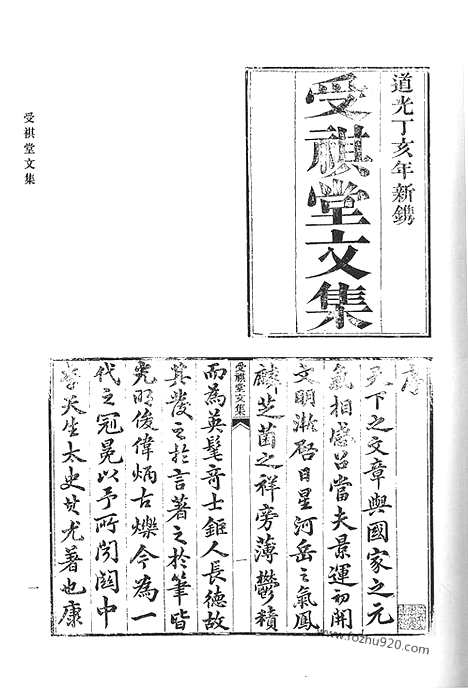 道光丁亥年新鐫
受祺堂文集
受祺堂文集
序
天下之文章與國家之元
氣相感召當夫景運初開
文明漸啓日星河岳之氣鳳
麟芝菌之祥旁薄鬱積
受祺堂文集
一
而為英髦奇士鉅人長德故
其發之於言著之於筆皆
光明俊偉炳古爍今為一
代之冠冕以予所聞關中
李天生太史其尤著也康
一
www.fozhu920.com